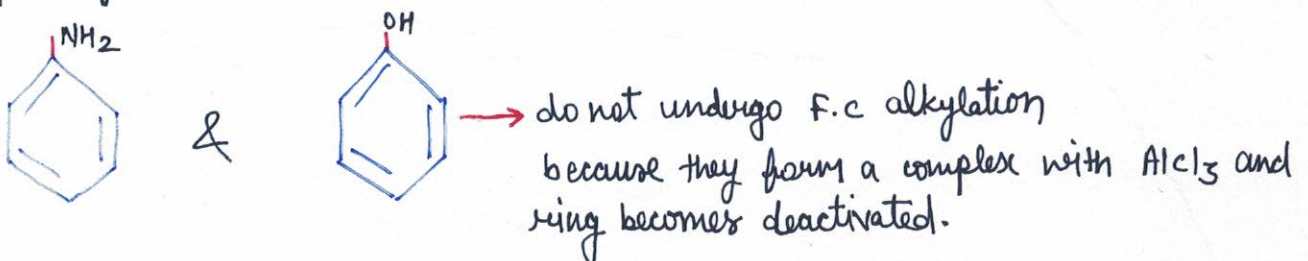 NH2
OH
&
do not undergo F.C alkylation
because they form a complex with AlCl3 and
ring becomes deactivated.